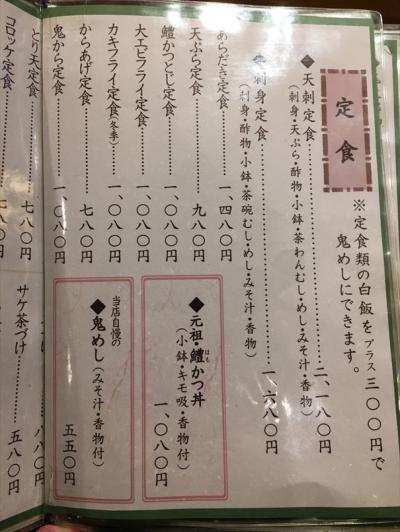 定食
※定食類の白飯をプラス三〇〇円で
鬼めしにできます。
一 天刺定食…………二、一八〇円
(刺身・天ぷら・酢物・小鉢・茶わんむし・めし・みそ汁・香物)
刺身定食…………一、六八〇円
(刺身・酢物・小鉢・茶碗むし・めし・みそ汁・香物)
あらだき定食…………一、四八〇円
天ぷら定食…………九八〇円
鱧かつとじ定食…………一、〇八〇円
大エビフライ定食…………一、〇八〇円
カキフライ定食(冬季)…一、〇八〇円
からあげ定食…………七八〇円
鬼から定食…………一、〇八〇円
とり天定食…………七八〇円
コロッケ定食…………七八〇円
◆元祖鱧かつ丼
はも
(小鉢・キモ吸・香物付)
一、〇八〇円
当店自慢の
◆鬼めし(みそ汁・香物付)
五五〇円
サケ茶づけ…………五八〇円